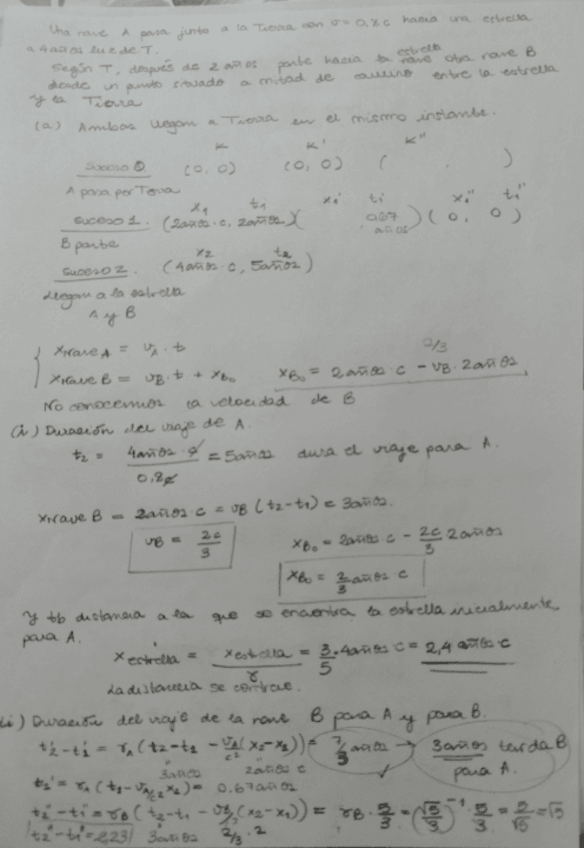 Una nave A pasa junto a la Tierra con v = 0,8c hacia una estrella
a 4 años luz de T.
Según T, después de 2 años parte hacia la estrella otra nave B
desde un punto situado a mitad de camino entre la estrella
y la Tierra
(a) Ambas llegan a Tierra en el mismo instante.
K K' K''
Suceso 0 (0, 0) (0, 0) ( , )
A pasa por Tierra
x₁ t₁ x₁' t₁' x₁'' t₁''
suceso 1. (2años·c, 2años) ( 0,67 años) (0, 0)
B parte
x₂ t₂
suceso 2. (4años·c, 5años)
llegan a la estrella
A y B
x nave A = v_A · t
x nave B = v_B · t + x_B₀ x_B₀ = 2años·c − v_B · 2años
2/3
No conocemos la velocidad de B
(i) Duración del viaje de A.
t₂ = 4años·c / 0,8c = 5años dura el viaje para A.
x nave B = 2años·c = v_B (t₂−t₁) = 3años.
v_B = 2c/3 x_B₀ = 2años·c − 2c/3 2años
x_B₀ = 2/3 años c
y tb distancia a la que se encuentra la estrella inicialmente,
para A.
x'estrella = x estrella / γ = 3/5 · 4años c = 2,4 años·c
La distancia se contrae.
ii) Duración del viaje de la nave B para A y para B.
t₂'−t₁' = γ_A (t₂−t₁ − v_A/c² (x₂−x₁)) = 7/3 años → 3años tarda B
3años 2años c para A.
t₁' = γ_A (t₁ − v_A/c² x₁) = 0.67años
t₂''−t₁'' = γ_B (t₂−t₁ − v_B/c² (x₂−x₁)) = γ_B · 5/3 = (√5/3)⁻¹ · 5/3 = 5/√5 = √5
t₂''−t₁'' = 2,23 3años 2/3 · 2